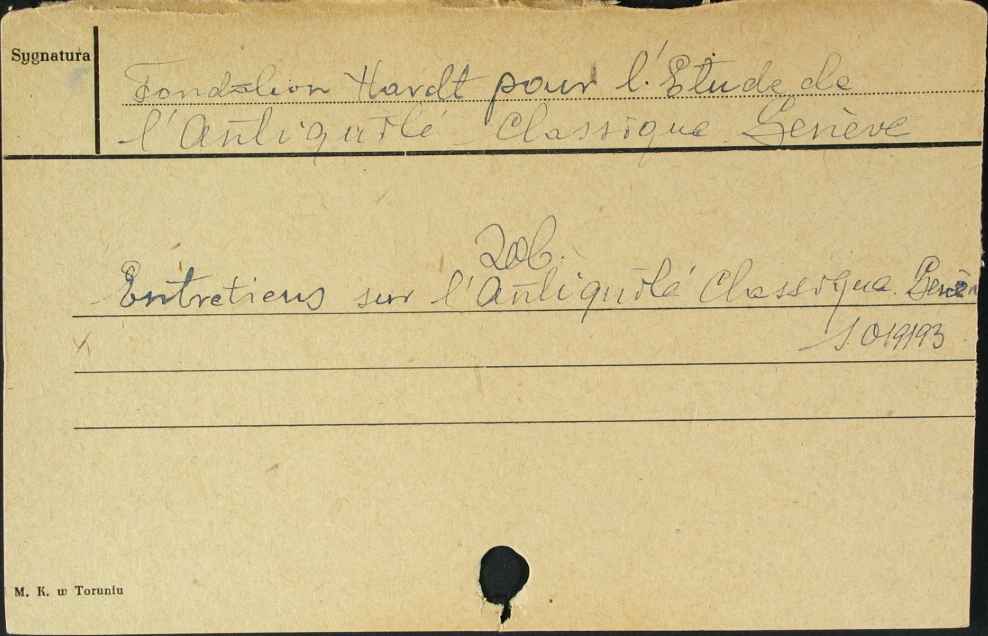 Sygnatura
Fondation Hardt pour l'Etude de
l'Antiquité Classique Genève
Zob.
Entretiens sur l'Antiquité Classique. Genèv
S 019193
M. K. w Toruniu